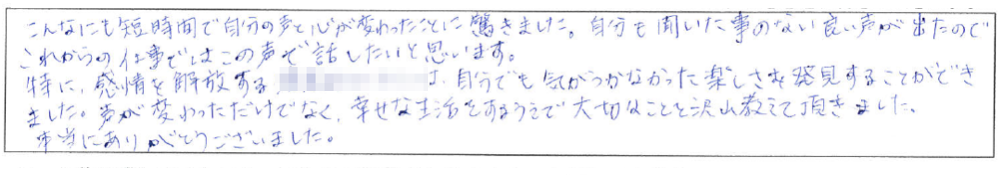 こんなにも短時間で自分の声と心が変わったことに驚きました。自分も聞いた事のない良い声が出たので
これからの仕事ではこの声で話したいと思います。
特に、感情を解放する は、自分でも気がつかなかった楽しさを発見することができ
ました。声が変わっただけでなく、幸せな生活をするうえで大切なことを沢山教えて頂きました。
本当にありがとうございました。